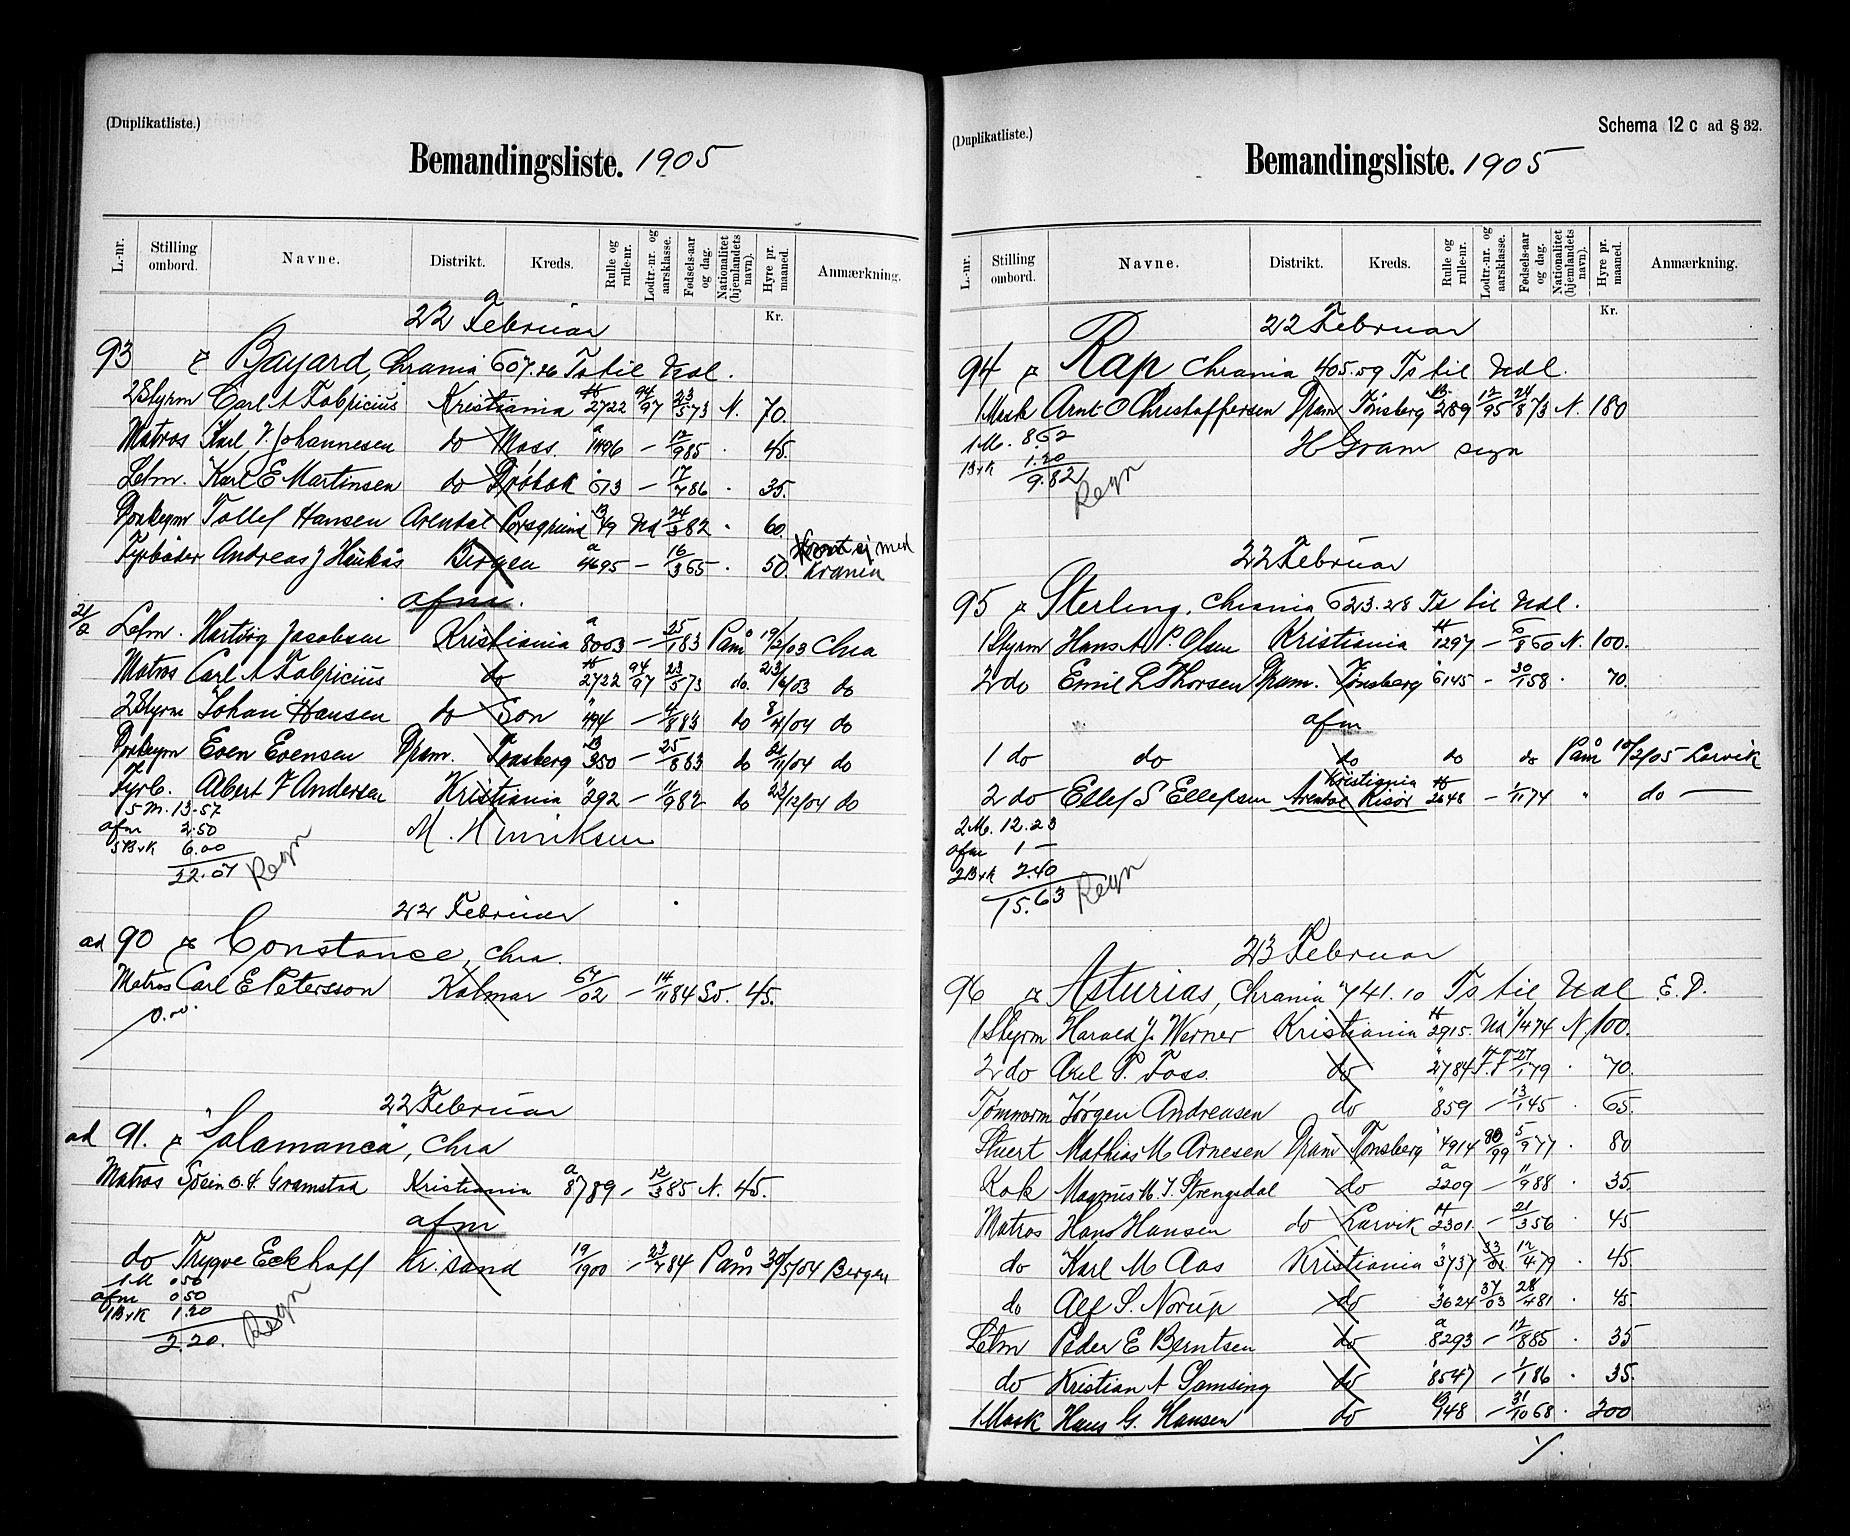 (Duplikatliste.)
Bemandingsliste. 1905
L.-nr. Stilling ombord. Navne. Distrikt. Kreds. Rulle og rulle-nr. Lodtr.-nr. og aarsklasse. Fødsels-aar og dag. Nationalitet (hjemlandets navn). Hyre pr. maaned. Anmærkning.
Kr.
22 Februar
93 Bayard, Chrania 607.26 Ts til Udl.
2 Styrm Carl A Fabricius Kristiania 2722 94/97 23/5 73 N. 70.
Matros Karl J. Johannesen do Moss. a 1496 - 12/9 85 . 45.
Letm. Karl E Martinsen do Drøbak 613 - 17/7 86 . 35.
Donkeym Tollef Hansen Arendal Porsgrund 49 Ud 24/3 82 . 60.
Fyrbøder Andreas J Haukås Bergen a 4695 - 16/3 65 . 50. ej med Kranen
afm.
21/2 Letm. Hartvig Jacobsen Kristiania a 8003 - 25/1 83 Påm 19/2/03 Chra
Matros Carl A Fabricius do 2722 94/97 23/5 73 do. 23/6/03 do
2 Styrm Johan Hansen do Son 494 - 4/8 83 do 8/4/04 do
Donkeym Even Evensen Dram. Tønsberg 350 - 25/8 63 do 21/11/04 do
Fyrb. Albert F Andersen Kristiania 292 - 11/9 82 do 23/12/04 do
5 M. 13.57
afm 2.50 M. Henriksen
5 B+K 6.00
22.07 Regn
22 Februar
ad 90 Constance, Chra.
Matros Carl E Petersson Kalmar 67/02 - 14/11 84 Sv. 45.
0.00
22 Februar
ad 91. "Salamanca", Chra
Matros O. J. Gramstad Kristiania a 8789 - 12/3 85 N. 45.
afm
do Trygve Eckhoff Kr.sand 19/1900 - 23/7 84 Påm 30/5/04 Bergen
1 M 0.50
afm 0.50
1 B+K 1.20
2.20. Regn
(Duplikatliste.) Schema 12 c ad § 32.
Bemandingsliste. 1905
L.-nr. Stilling ombord. Navne. Distrikt. Kreds. Rulle og rulle-nr. Lodtr.-nr. og aarsklasse. Fødsels-aar og dag. Nationalitet (hjemlandets navn). Hyre pr. maaned. Anmærkning.
Kr.
22 Februar
94 Rap Chrania 405.59 Ts til Udl.
1 Mask Arnt O Christoffersen Dram Tønsberg 289 12/95 24/8 73 N. 180
1 M. 8.62 H Gram sign
1 B+K 1.20
9.82 Regn
22 Februar
95 Sterling, Chrania 623.28 Ts til Udl.
1 Styrm Hans A P. Olsen Kristiania 1297 - 6/8 60 N. 100.
2 do Emil L Thorsen Dram. Tønsberg 6145 - 30/1 58 . 70.
afm
1 do do do do do Påm 10/2/05 Larvik
2 do Ellef S Ellefsen Arendal Risør Kristiania 2648 - 1/11 74 " do —
2 M. 12.23
afm 1 -
2 B+K 2.40
15.63 Regn
23 Februar
96 Asturias, Chrania 741.10 Ts til Udl E.D.
1 Styrm Harald J. Werner Kristiania 2915 Ud 1/4 74 N. 100.
2 do Axel P. Foss. do 2784 F.F 27/1 79 . 70.
Tømmerm Jørgen Andreasen do 859 - 13/1 45 . 65.
Stuert Mathias M Arnesen Dram Tønsberg 4914 80/99 5/9 77 . 80
Kok Magnus M J. Strengsdal do a 2209 - 11/9 88 . 35.
Matros Hans Hansen do Larvik 2301 - 21/3 56 . 45
do Karl M Aas Kristiania 3737 12/4 79 . 45.
do Alf S. Norup do 3624 37/03 28/4 81 . 45.
Letm Peder E Berntsen do a 8293 - 12/8 85 . 35
do Kristian A Samsing do 8547 - 1/1 86 . 35.
1 Mask Hans G. Hansen do 948 - 31/10 68 . 200